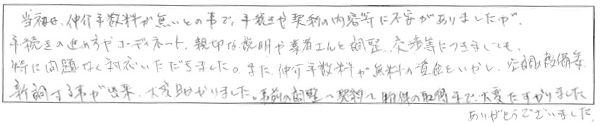 当初は、仲介手数料が無いとの事で、手続きや契約の内容等に不安がありましたが、
手続きの進め方やコーディネート、親切な説明や業者さんと調整、交渉等につきましても、
特に問題なく対応いただきました。また、仲介手数料が無料の資金をいかし、空調設備等
新調する事が出来、大変助かりました。事前の調整〜契約〜物件の取得まで大変たすかりました
ありがとうございました。